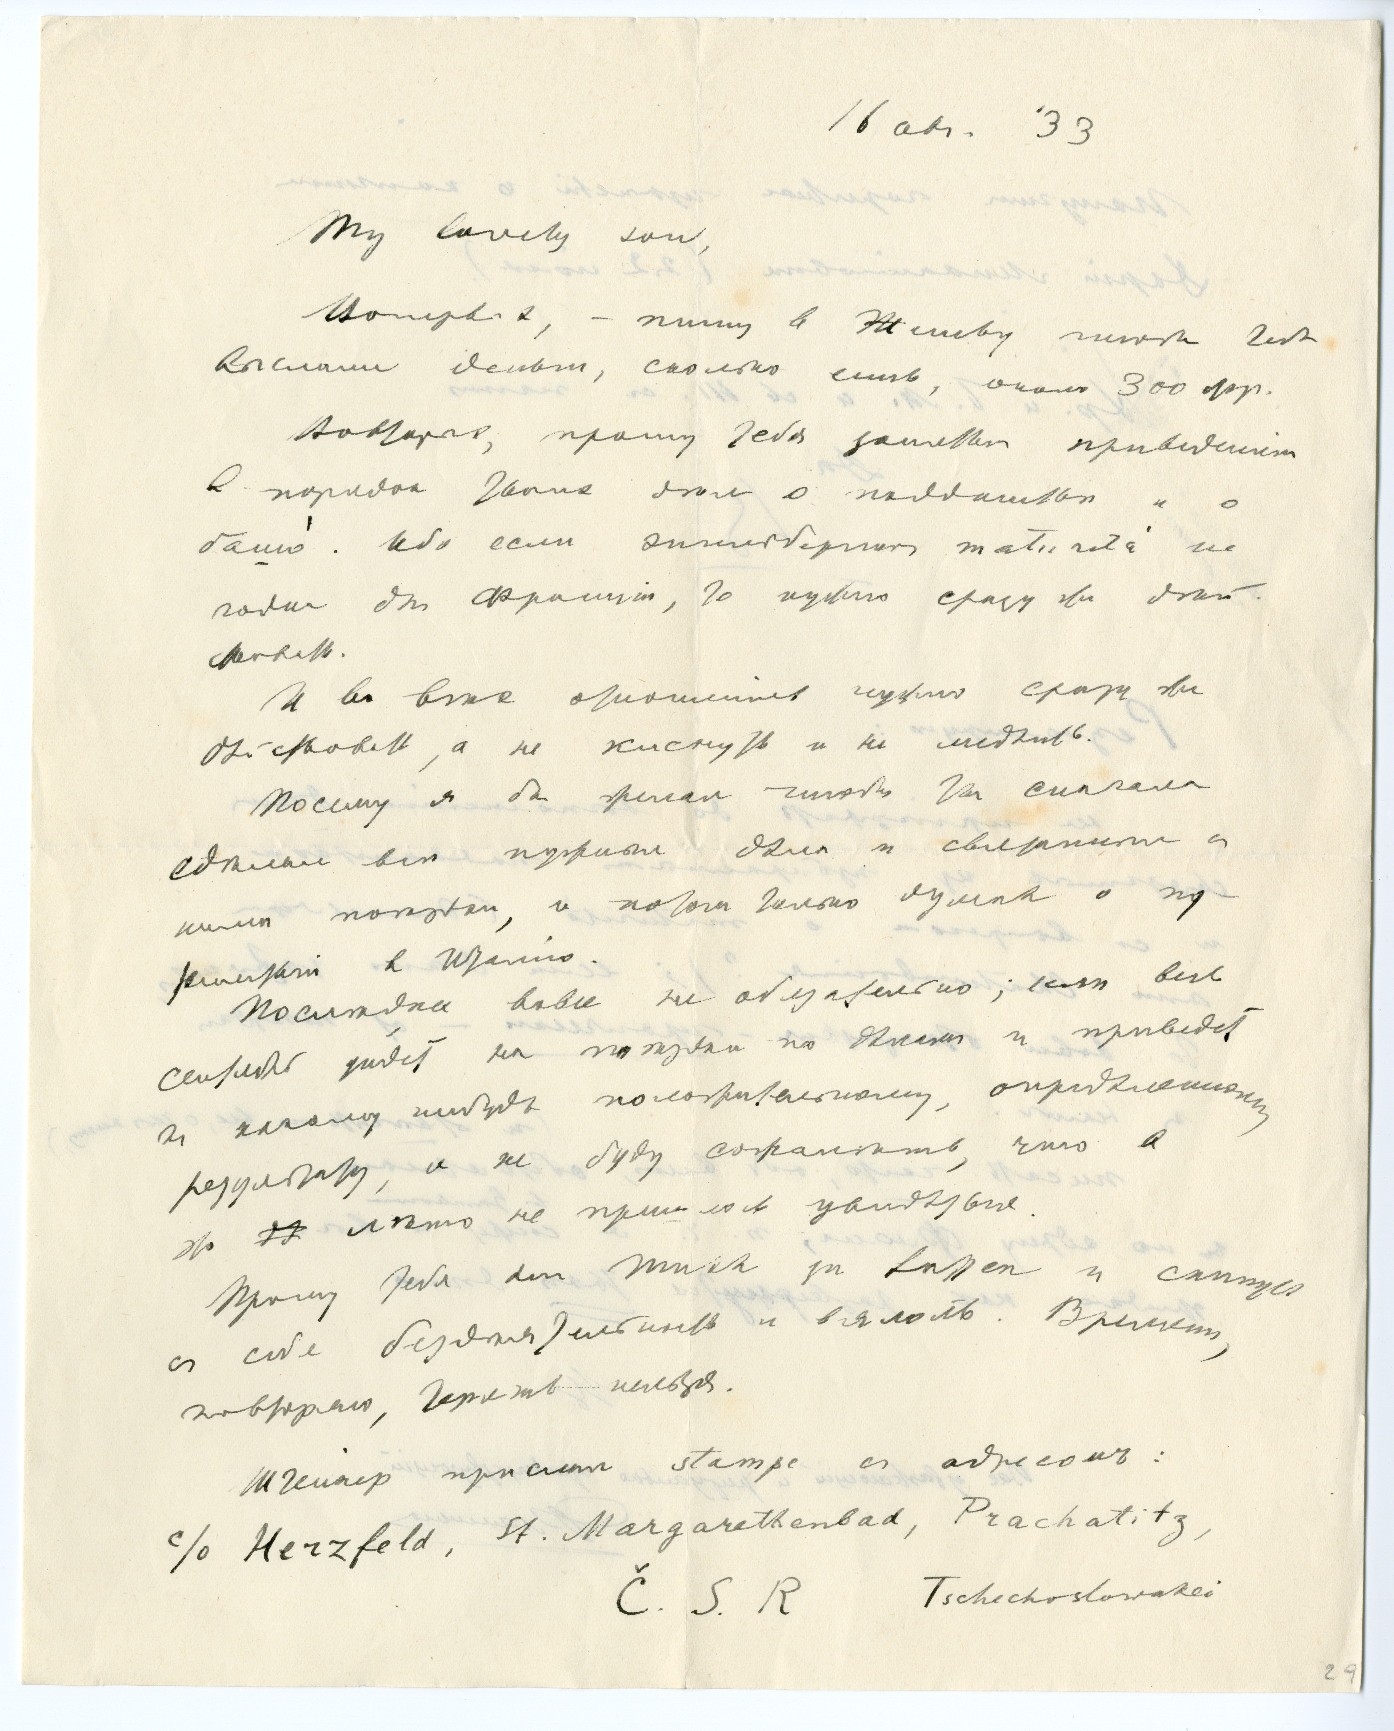 16 авг. '33
My lovely son,
Вопервых, – пишу в Женеву чтобы тебе
выслали деньги, сколько есть, около 300 фр.
Вовторых, прошу тебя заняться приведенiем
в порядок твоих дел о подданствѣ и о
башо. Ибо если maturità не
годна для Францiи, то нужно сразу же дѣй-
ствовать.
И во всѣх отношенiях нужно сразу же
дѣйствовать, а не киснуть и не медлить.
Посему я бы желал чтобы ты сначала
сдѣлал всѣ нужные дѣла и связанные с
ними поѣздки, и потом только думать о пу-
тешествiи в Италiю.
Послѣднее вовсе не обязательно; если весь
сентябрь уйдет на поѣздки по дѣлам и приведет
к какому нибудь положительному, опредѣленному
результату, я не буду сожалѣть, что в
это лѣто не пришлось увидѣться.
Прошу тебя von Musik zu lassen и скинуть
с себя бездѣятельность и вялость. Времени,
повторяю, терять нельзя.
Штейнер прислал stampe с адресом:
c/o Herzfeld, St. Margarethenbad, Prachatitz,
Č. S. R Tschechoslowakei
29